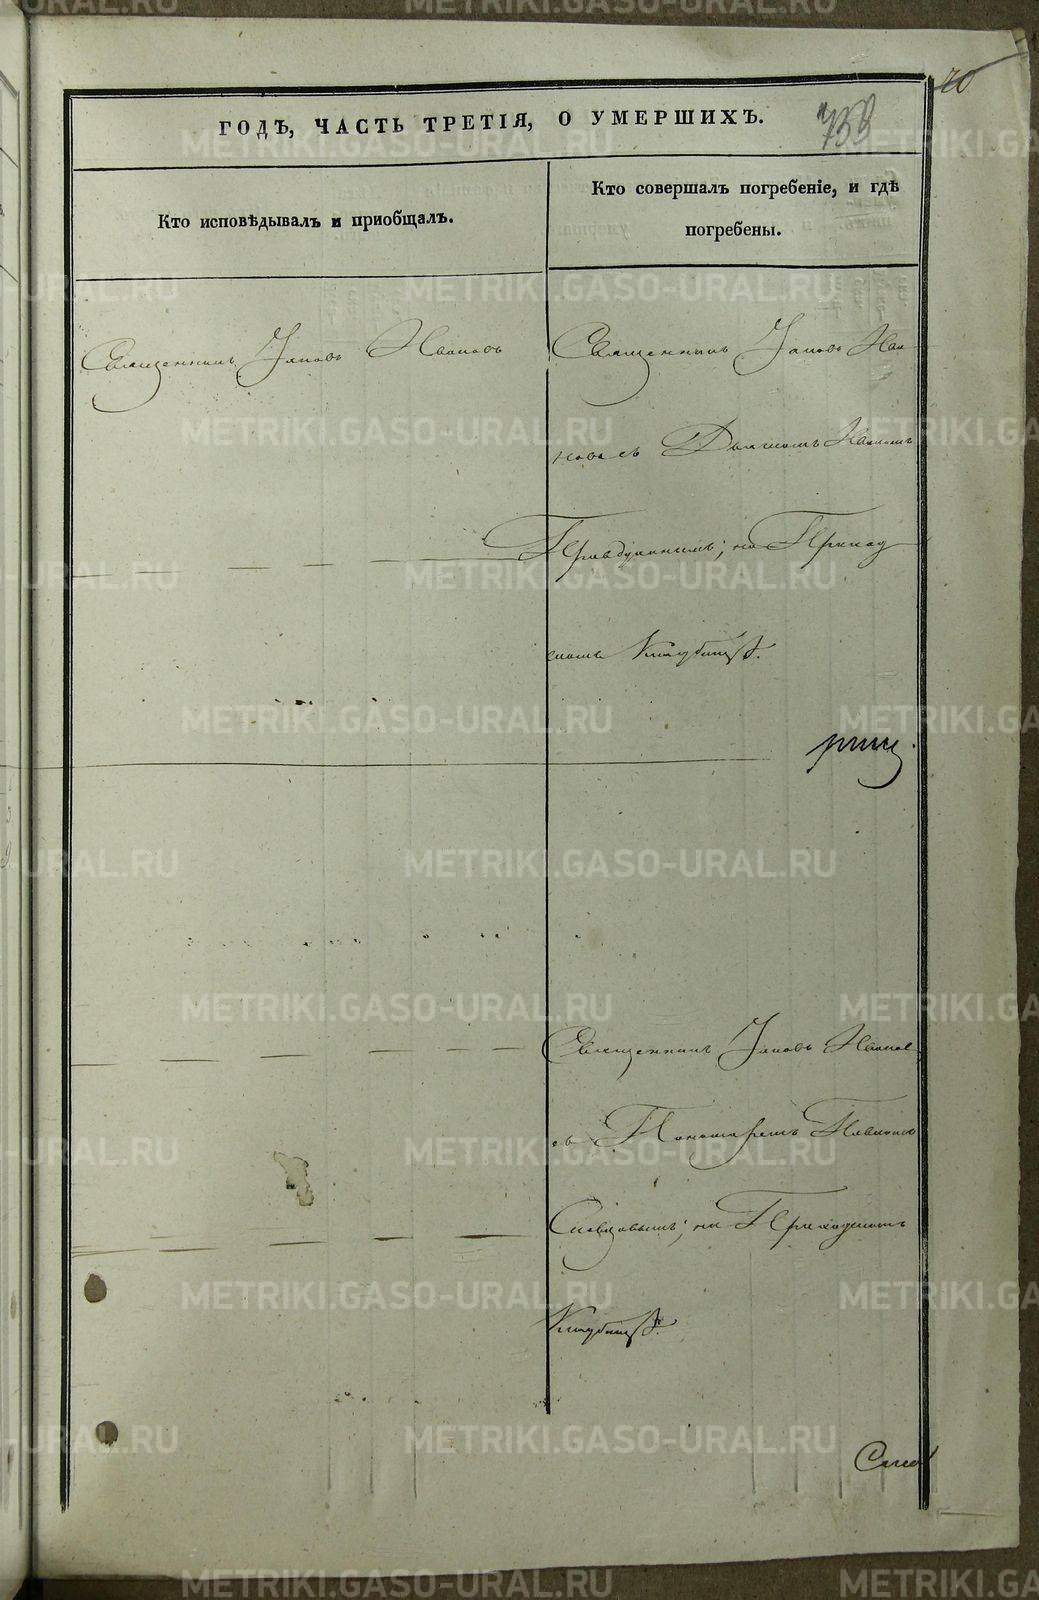 70
759
ГОДЪ, ЧАСТЬ ТРЕТІЯ, О УМЕРШИХЪ.
Кто исповѣдывалъ и приобщалъ.
Кто совершалъ погребеніе, и гдѣ
погребены.
Священникъ Іаковъ Ивановъ
Священникъ Іаковъ Ива
новъ съ Дьячкомъ Иваномъ
на Приход
скомъ Кладбищѣ.
Священникъ Іаковъ Иванов
съ Пономаремъ Павломъ
на Приходскомъ
Кладбищѣ.
METRIKI.GASO-URAL.RU